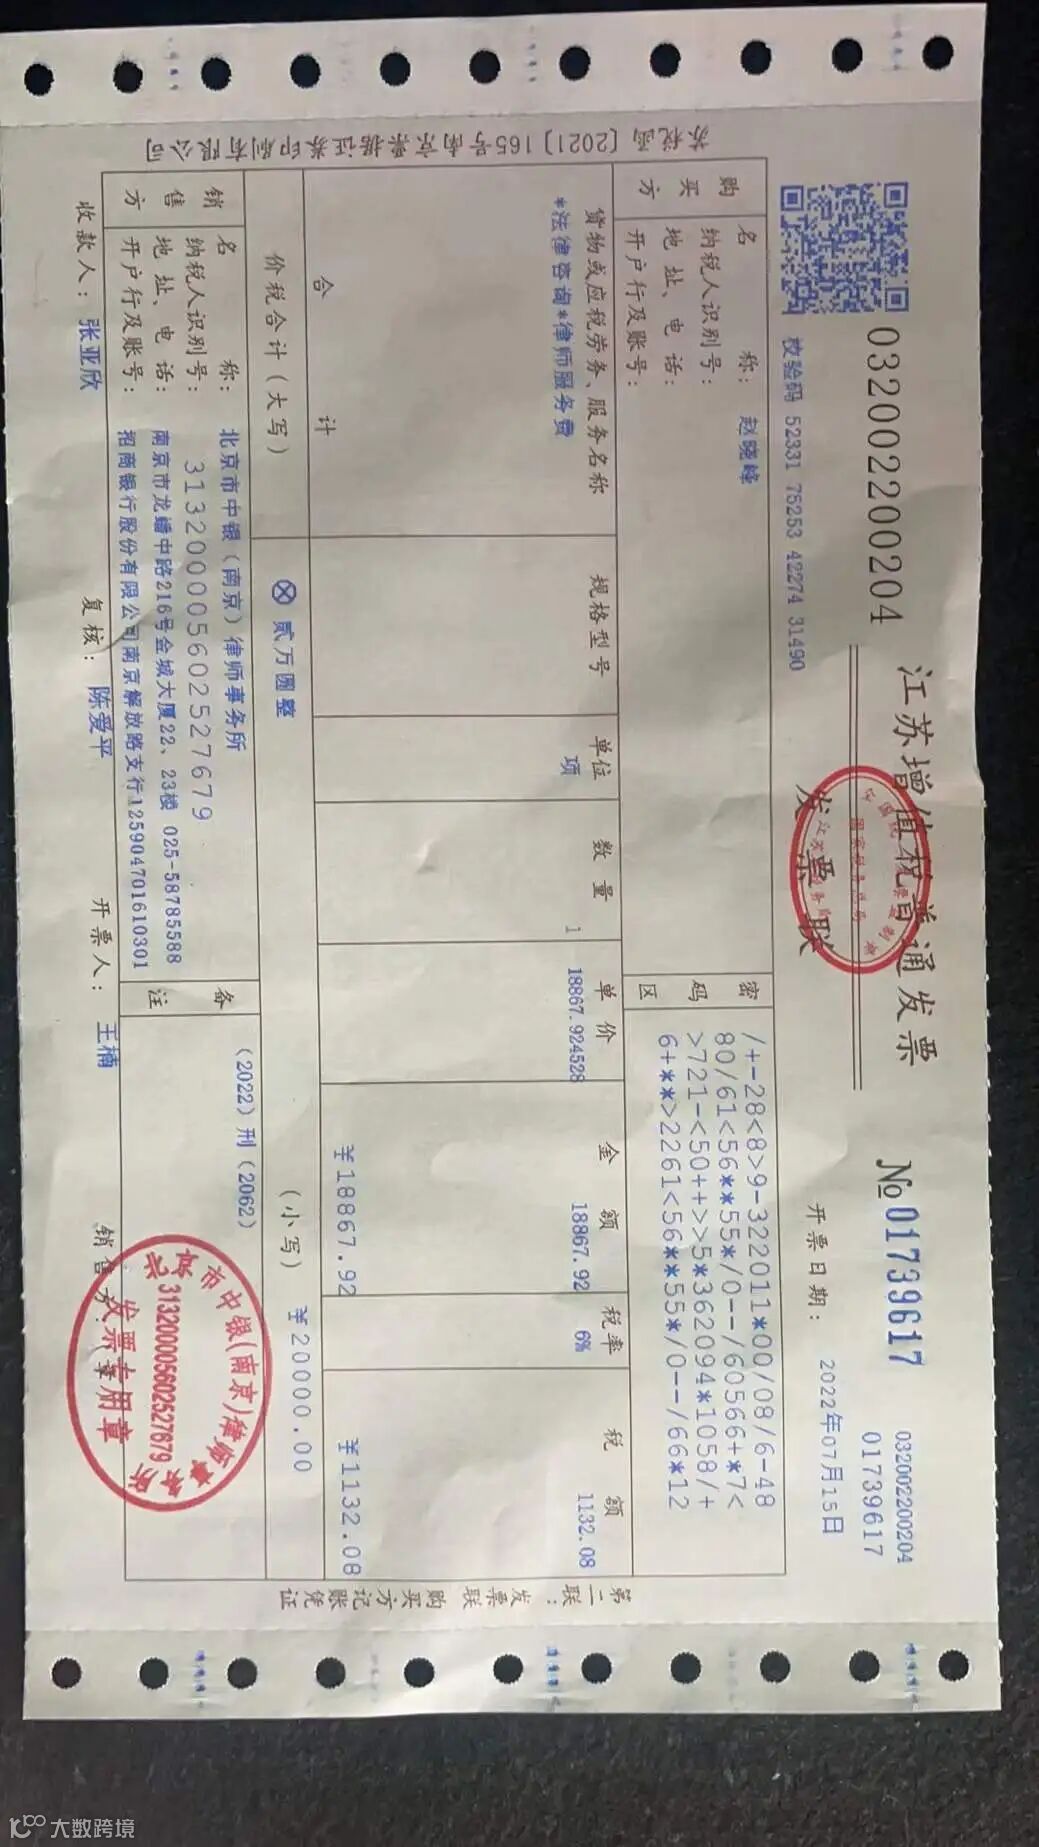 032002200204
江苏增值税普通发票
发票联
№01739617
032002200204
01739617
校验码 52331 75253 42274 31490
开票日期: 2022年07月15日
购买方
名 称: 赵晓峰
纳税人识别号:
地 址、电 话:
开户行及账号:
密码区
/+-28<8>9-322011*00/08/6-48
80/61<56**55*/0--/60566+*7<
>721-<50++>>5*362094*1058/+
6+**>2261<56**55*/0--/66*12
货物或应税劳务、服务名称 规格型号 单位 数量 单价 金额 税率 税额
*法律咨询*律师服务费 项 1 18867.924528 18867.92 6% 1132.08
合 计 ¥18867.92 ¥1132.08
价税合计(大写) ⊗贰万圆整 (小写) ¥20000.00
销售方
名 称: 北京市中银(南京)律师事务所
纳税人识别号: 31320000560252767​9
地 址、电 话: 南京市龙蟠中路216号金城大厦22、23楼 025-58785588
开户行及账号: 招商银行股份有限公司南京解放路支行125904701610301
备注
(2022)刑(2062)
收款人: 张亚欣 复核: 陈爱平 开票人: 王楠 销售方:
北京市中银(南京)律师事务所
313200005602527679
发票专用章
苏税函[2021]165号南京票据证券印刷有限公司
第二联:发票联 购买方记账凭证
大数跨境